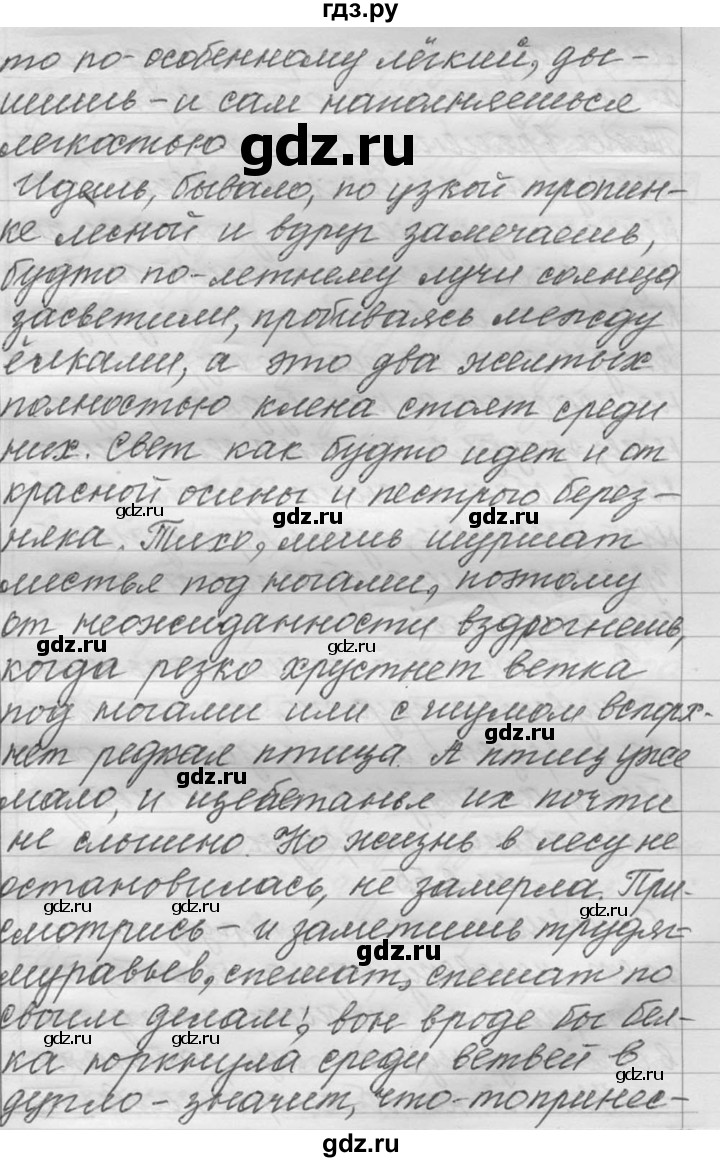 гдз.ру
то по-особенному лёгкий, ды-
шишь - и сам наполняешься
легкостью
Идешь, бывало, по узкой тропин-
ке лесной и вдруг замечаешь,
будто по-летнему лучи солнца
засветили, пробиваясь между
ёлками, а это два желтых
полностью клена стоят среди
них. Свет как будто идет и от
красной осины и пестрого берез-
няка. Тихо, лишь шуршат
листья под ногами, поэтому
от неожиданности вздрогнешь,
когда резко хрустнет ветка
под ногами или с шумом вспорх-
нет редкая птица. А птиц уже
мало, и щебетанья их почти
не слышно. Но жизнь в лесу не
остановилась, не замерла. При-
смотрись - и заметишь трудяг-
муравьев, спешат, спешат по
своим делам; вон вроде бы бел-
ка юркнула среди ветвей в
дупло - значит, что-то принес-
gdz.ru